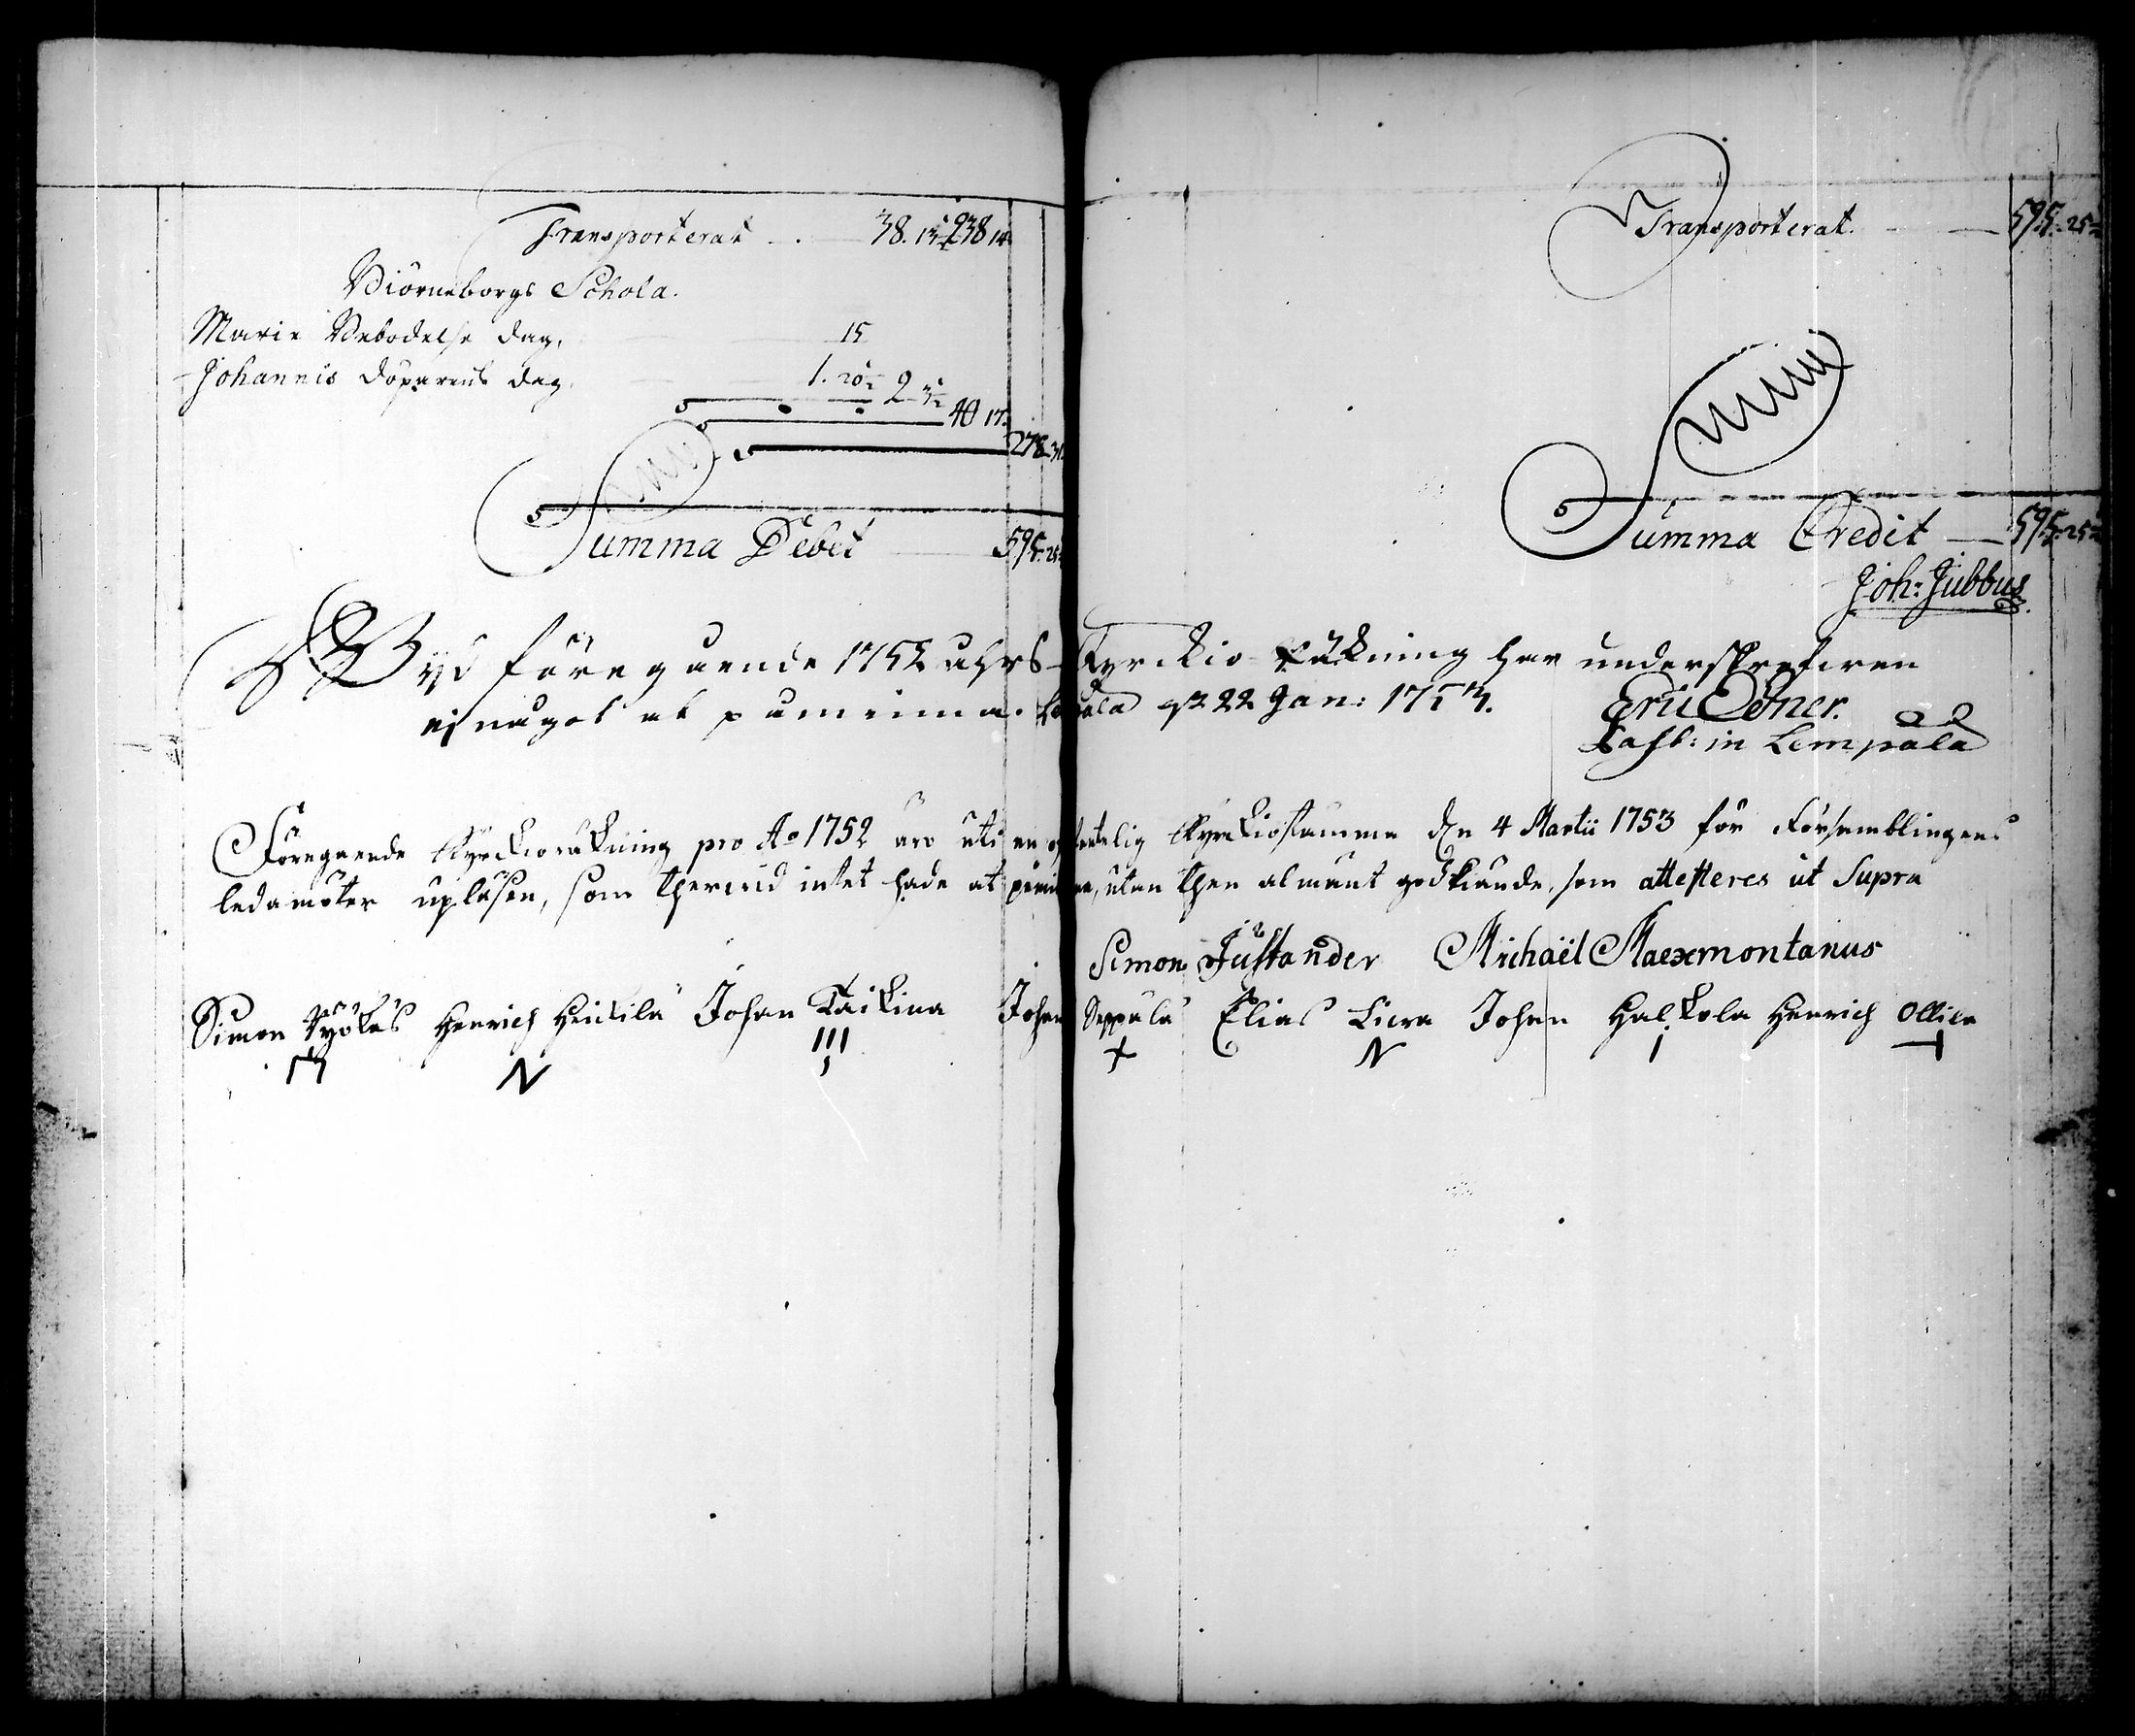 Transporterat . . 38. 13 1/2 238 14
Biörneborgs Schola.
Mariæ Bebodelse dag, 15
Johannis döparens dag, 1. 20 1/2 2 3 1/2
40 17
278 31
Summa Debet 595. 25
Transporterat. 595. 25
Summa Credit 595. 25
Joh: Jubbus
Wyd föregående 1752 åhrs Kyrckio Räkning har underskrefwen
ej något at påminna. Lempälä 22 Jan: 1753. Eric Ebner.
in Lempälä
Föregående Kyrckioräkning pro Ao 1752 uti en offentelig Kyrckiostämma den 4 Martii 1753 för Församblingens
ledamöter upläsen, som therwid intet hade at påminna, utan then almänt godkiände, som attesteres ut Supra
Simon Justander Michaël Maexmontanus
Simon Henrich Heickilä Johan Taikina Johan Seppälä Elias Liera Johan Halkola Henrich Ollila
N III + N